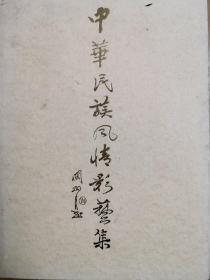 中華民族风情影藝集